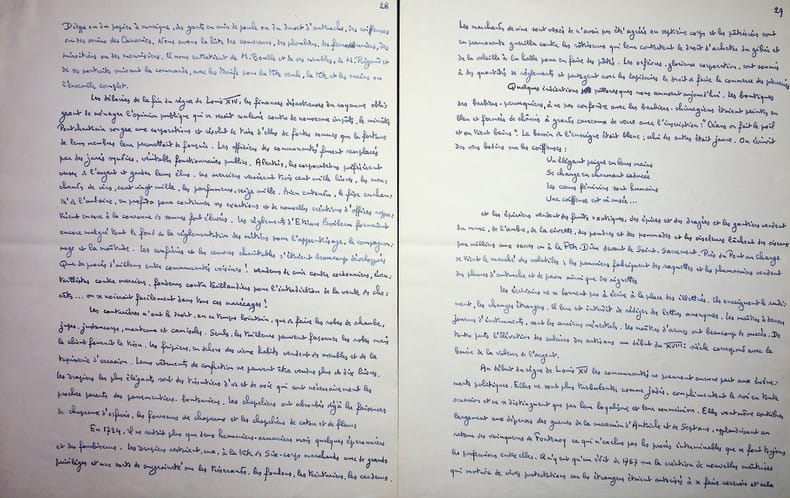 28
Dièze ou du papier à musique, des gants en cuir de poule ou du duvet d'autruche, des coiffeuses
ou des serins des Canaries. Nous avons la liste des couvreurs, des plombiers, des
miroitiers ou des menuisiers. Il nous entretient de M. Boulle et de ses meubles, de M. Rigaud et
de ses portraits suivant la commande, avec les tarifs pour la tête seule, la tête et les mains ou
l'ensemble complet.
Les déboires de la fin du règne de Louis XIV, les finances désastreuses du royaume obli-
geant de ménager l'opinion publique qui se serait mal de nouveaux impôts, le ministre
Pontchartrain songea aux corporations et résolut de tirer d'elles de fortes sommes que la fortune
de leurs membres leur permettait de fournir. Les officiers des communautés furent remplacés
par des jurés syndics, véritables fonctionnaires publics. Alertés, les corporations préférèrent
à l'argent et garder leurs élus. Les merciers versèrent trois cent mille livres, les mar-
chands de vins, cent vingt mille, les parfumeurs, seize mille. Bien entendu, le fisc
là à l'entrée, en profita pour continuer ses exactions et de nouvelles créations d'offices
encore à la couronne de sommes fort élevées. Les règlements d'Etienne Boileau formaient
encore malgré tout le fond de la réglementation des métiers pour l'apprentissage, le compagnon-
nage et la maîtrise. Les confréries et les œuvres charitables s'étaient beaucoup développées
Que de procès d'ailleurs entre communautés voisines ! vendeurs de cuir contre cordonniers,
contre merciers, fondeurs contre taillandiers pour l'interdiction de la vente de
... on se noircissait facilement dans tous ces marécages !
Les couturières n'ont le droit, en ce temps lointain, que de faire les robes de chambre,
jupes, justaucorps, manteaux et camisoles. Seuls, les tailleurs peuvent façonner les robes mais
le client fournit le tissu. Les fripiers, en dehors des vieux habits vendent des meubles et de la
tapisserie d'occasion. Leurs vêtements de confection ne peuvent être vendus plus de dix livres.
Les les plus élégants sont des tissutiers d'or et de soie qui ont nécessairement les
proches parents des passementiers boutonniers. Les chapeliers ont absorbé déjà les faiseuses
de chapeaux d'orfroi, les feutriers de chapeaux et les chapeliers de coton et de fleurs
En 1724, il ne restait plus que deux heaumiers-armuriers mais quelques éperonniers
et des fourbisseurs. Les drapiers restaient, eux, à la tête des Six-corps marchands avec de grands
privilèges et une sorte de suzeraineté sur les tisserands, les foulons, les teinturiers, les cardeurs.
29
Les marchands de vins sont vexés de n'avoir pas été agréés en septième corps et les pâtissiers sont
en permanente querelle contre les rôtisseurs qui leur contestent le droit d'acheter du gibier et
de la volaille à la halle pour en faire des pâtés. Les orfèvres, glorieuse corporation, sont soumis
à des quantités de règlements et partagent avec les lapidaires le droit à faire le commerce des pierreries
Quelques institutions pittoresques nous amusent aujourd'hui. Les boutiques
des barbiers-perruquiers, à ne pas confondre avec les barbiers-chirurgiens étaient peintes en
bleu et fermées de châssis à grands carreaux de verre avec l'inscription "Céans on fait le poil
et on tient bains". Le bassin à l'enseigne était blanc, celui des autres était jaune. On écrivit
des vers badins sur les coiffeuses :
Un élégant peigne en leurs mains
Se change en charmant
Les cœurs féminins sont humains
Une coiffeuse est si ...
et les épiciers vendent des fruits exotiques, des épices et des dragées et les gantiers vendent
du musc, de l'ambre, de la civette, des poudres et des pommades et les oiseleurs lâchent des oiseaux
par milliers aux sacres ou à la Fête-Dieu devant le Saint-Sacrement. Près du Pont au change
se tient le marché des volatiles ; les paumiers fabriquent des raquettes et les plumassiers vendent
des plumes d'autruche et de paon ainsi que des aigrettes
Les écrivains ne se bornent pas à écrire à la place des illettrés. Ils enseignent le rudi-
ment, les changes étrangers. Il leur est interdit de rédiger des lettres anonymes. Les maîtres à danser
joueurs d'instruments, sont les anciens ménestrels. Les maîtres d'armes ont beaucoup de succès. De
toutes parts l'élévation des artisans au début du XVIIIe siècle correspond avec la
baisse de la valeur de l'argent.
Au début du règne de Louis XV les communautés ne prennent aucune part aux événe-
ments politiques. Elles ne sont plus turbulentes comme jadis, complimentent le roi en toute
occasion et ne se distinguent que par leur loyalisme et leur soumission. Elles vont même contribuer
largement aux dépenses des guerres de la succession d'Autriche et de Sept ans, applaudissant au
retour des vainqueurs de Fontenoy ce qui n'exclut pas les procès interminables que se font toujours
les professions entre elles. Qu'y eut qu'un édit de 1767 sur la création de nouvelles maîtrises
qui motiva de vives protestations car les étrangers étaient autorisés à se faire recevoir et cela